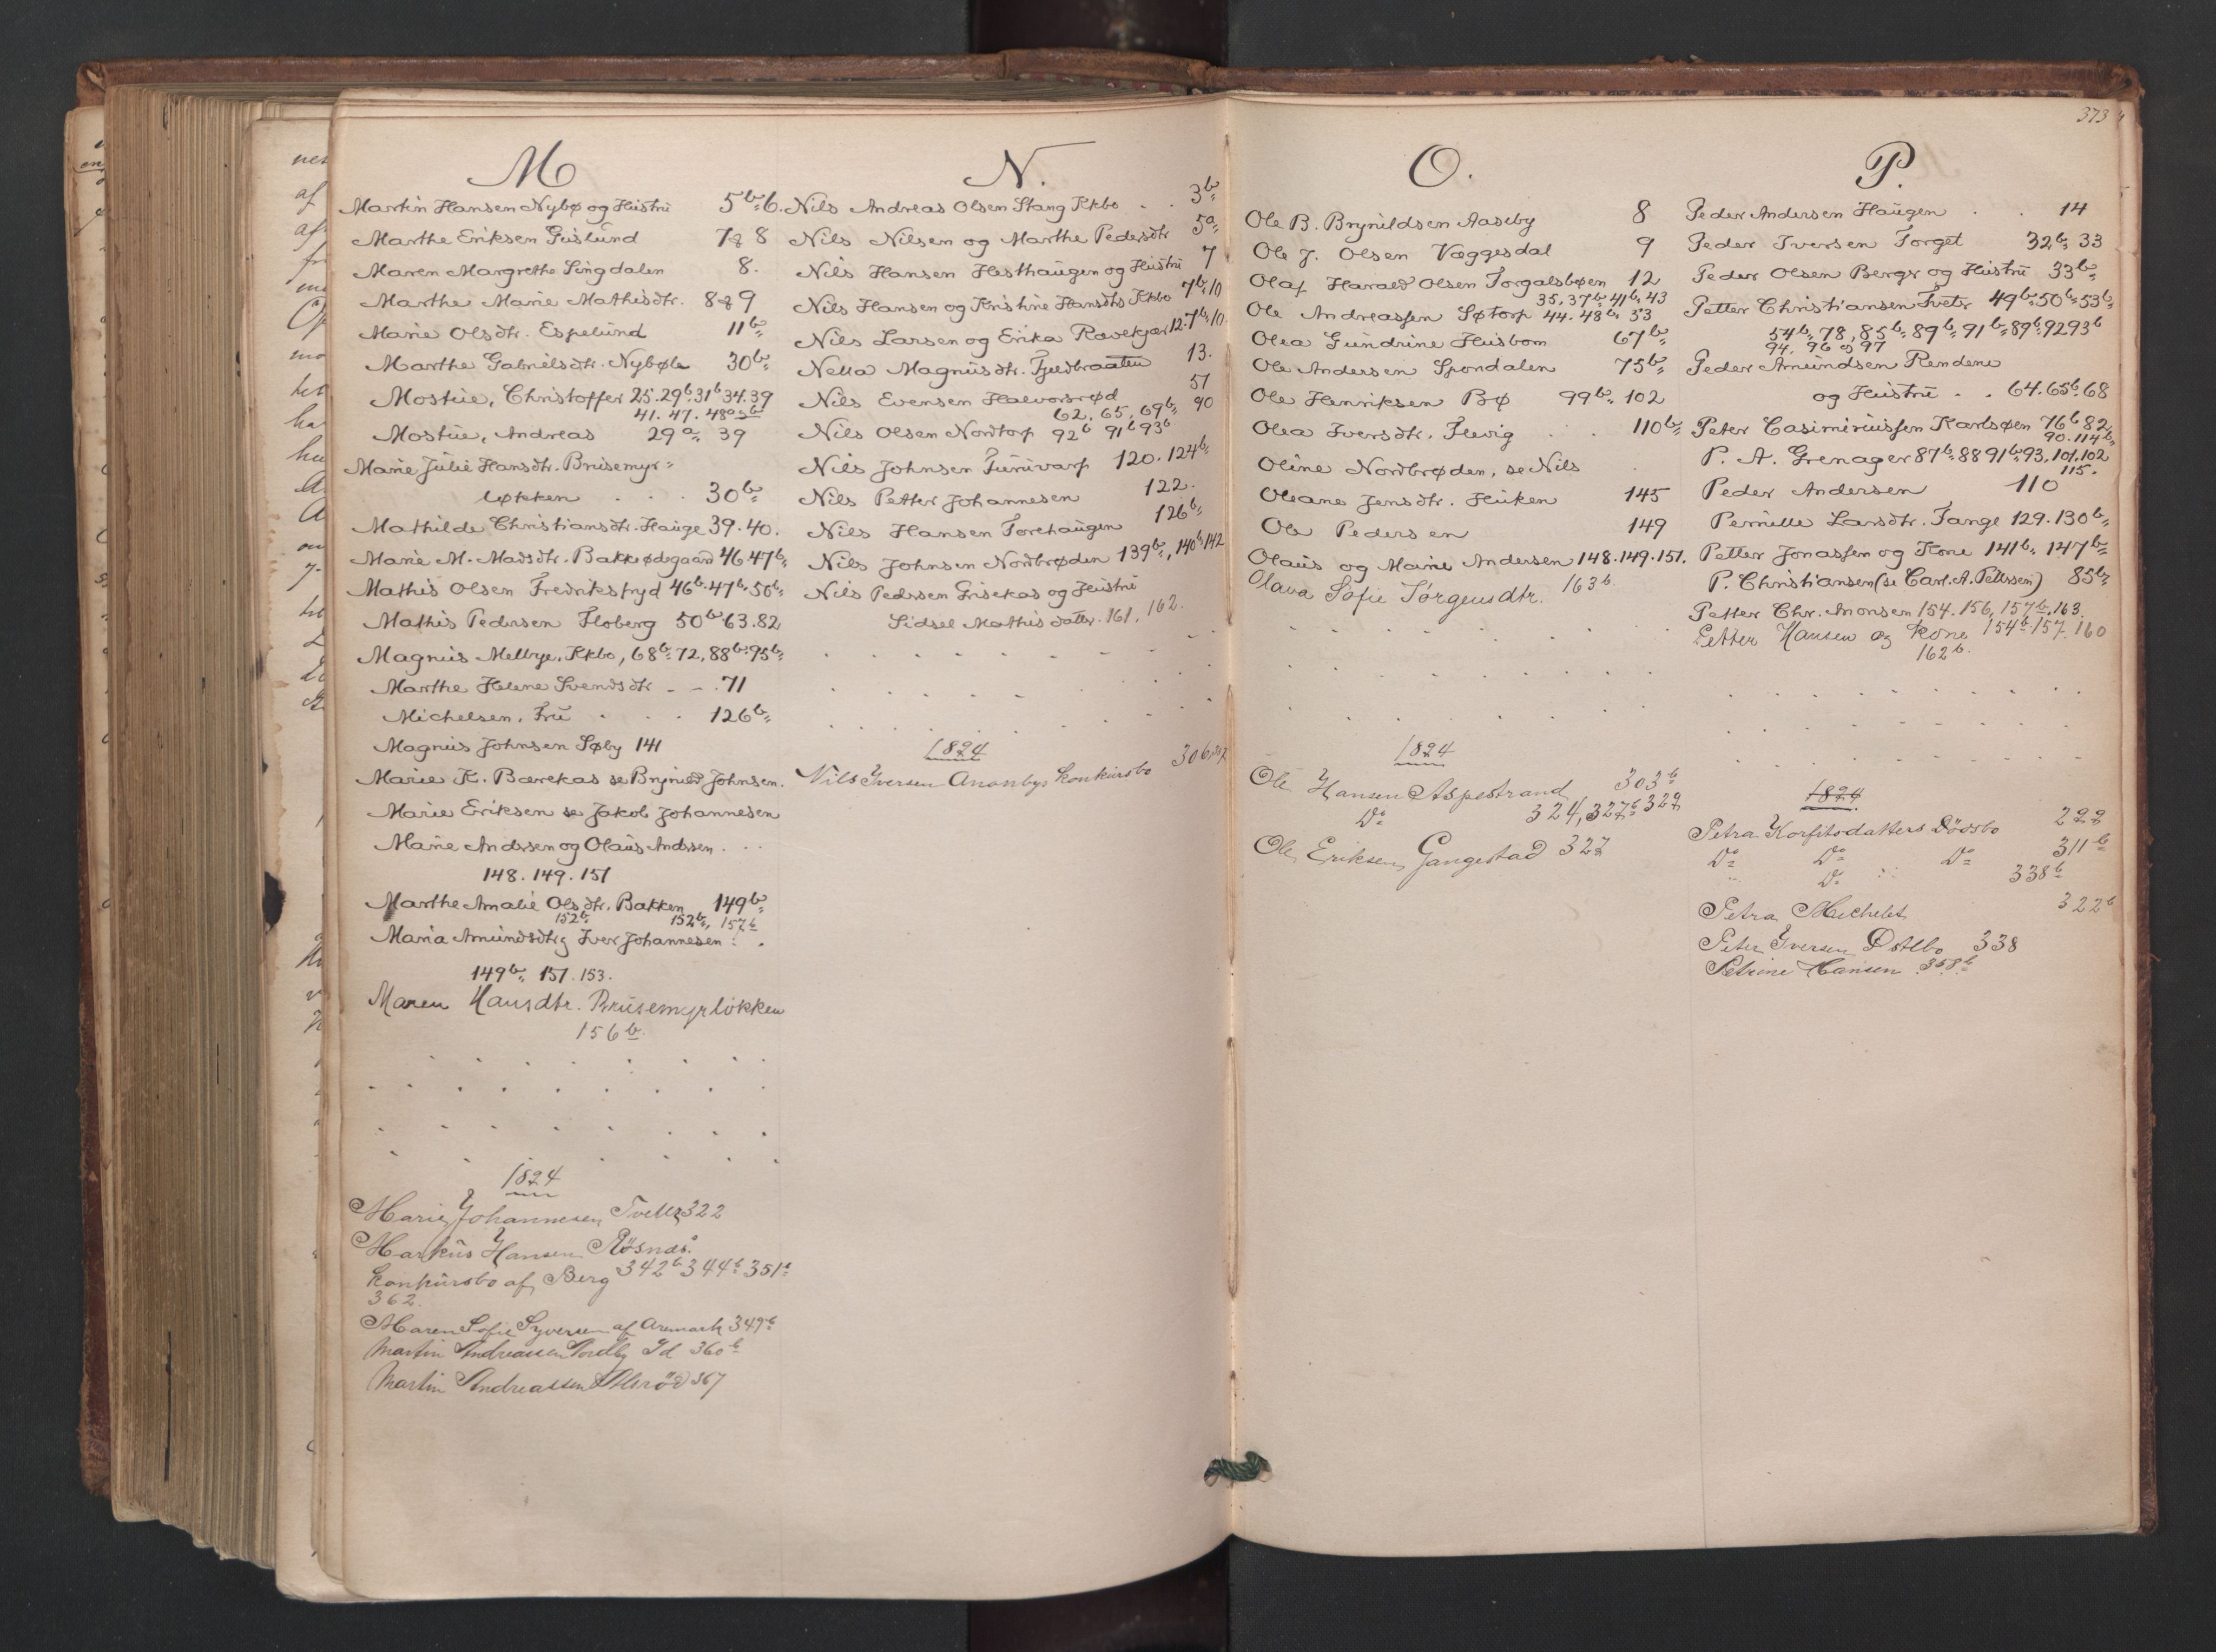 373
M
Martin Hansen Nybø og Hustru 5b 6.
Marthe Eriksen Gislund 7 & 8
Maren Margrethe Lingdalen 8.
Marthe Marie Mathisdtr. 8 & 9
Marie Olsdtr. Espelund 11b
Marthe Gabrielsdtr. Nybøle 30b
Mostue, Christoffer 25. 29b 31b 34. 39
41. 47. 48a
Mostue, Andreas 29a 39
Marie Julie Hansdtr. Brusemyr=
løkken . . . 30b
Mathilde Christiansdtr. Hauge 39. 40.
Marie M. Madsdtr. Bakkødegaard 46 47b
Mathis Olsen Fredriksfryd 46b 47b 56b
Mathis Pedersen Floberg 50b 63. 82
Magnus Melbye, Kkbo, 68b 72, 88b 95b
Marthe Helene Svendsdtr – – . 71
Michelsen, Fru . . . 126b
Magnus Johnsen Søby 141
Marie K. Bærekas se Brynild Johnsen.
Marie Eriksen se Jakob Johannesen
Marie Andersen og Olaus Andersen . . .
148. 149. 151
Marthe Amalie Olsdtr. Bakken 149b
152b 152b, 157b
Maria Amundsdtr og Iver Johannesen
149b 151. 153.
Maren Hansdtr. Brusemyrløkken
156b
1894
Marie Johannesen Tveter 322
Markus Hansen Røsnæs.
konkursbo af Berg 342b 344b 351a
362.
Maren Sofie Syversen af Aremark 349b
Martin Andreassen Id 360b
Martin Andreassen 367
N.
Nils Andreas Olsen Stang Kkbo . . 3b
Nils Nilsen og Marthe Pedersdtr 5a
Nils Hansen Hasthaugen og Hustru 7
Nils Hansen og Kristine Hansdtrs Kkbo 7b 10
Nils Larsen og Erika Rævekjær 12. 7b 10.
Nella Magnusdtr. Fjeldbraaten 13.
Nils Evensen Halvorsrød 51
62. 65. 69b 90
Nils Olsen Nordtorp 92b 91b 93b
Nils Johnsen Furuvarp 120. 124b
Nils Petter Johannesen 122.
Nils Hansen Torehaugen 126b
Nils Johnsen Nordbrøden 139b, 140b 142
Nils Pedersen Grisekas og Hustru
Sidsel Mathisdatter. 161, 162.
1894
Nils Iversen Ananbys konkursbo 306, 307
O.
Ole B. Brynildsen Aaseby 8
Ole J. Olsen Væggesdal 9
Olaf Harald Olsen Torgalsbøen 12
35, 37b 41b 43
Ole Andreassen Søtorp 44. 48b 53
Olea Gundrine Husbom 67b
Ole Andersen Spondalen 75b
Ole Henriksen Bø 99b 102
Olea Iversdtr. Flevig . . 110b
Oline Nordbrøden, se Nils
Oleane Jensdtr. Huken 145
Ole Pedersen 149
Olaus og Marie Andersen 148. 149. 151.
Olava Sofie Jørgensdtr. 163b
1894
Ole Hansen Aspestrand 303b
Do 324, 327b 329
Ole Eriksen Gangestad 327
P.
Peder Andersen Haugen . . 14
Peder Iversen Torget 32b 33
Peder Olsen Berger og Hustru 33b
Petter Christiansen Tveter 49b 50b 53b
54b, 78, 85b 89b 91b 89b 92 93b
94. 96 og 97
Peder Amundsen Rendene
og Hustru . . 64. 65b 68
Peter Casimiriussen Karlsøen 76b 82
90. 114b
P. A. Grenager 87b 88 91b 93, 101, 102
115.
Peder Andersen 110
Pernille Larsdtr. Tange 129. 130b
Petter Jonassen og Kone 141b 147b
P. Christiansen (se Carl. A. Pettersen) 85b
Petter Chr. Monsen 154. 156, 157b, 163.
Petter Hansen og kone 154b 157. 160
162b
1894
Petra Korfitsdatters Dødsbo 299
Do Do Do 311b
" Do " 338b
Petra Michelet 322b
Peter Iversen 338
Petrine Hansen 358b